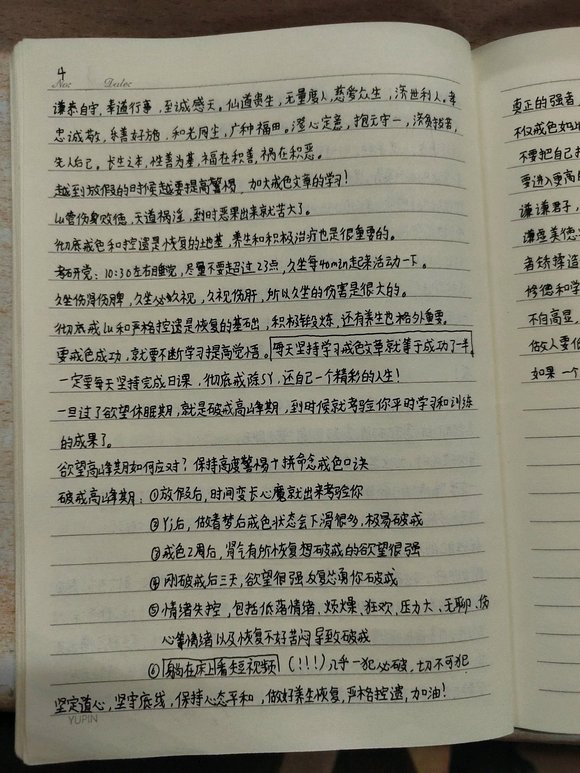 4
No: Date:
谦恭自守，奉道行事，至诚感天。仙道贵生，无量度人，慈爱众生，济世利人。孝
忠诚敬，乐善好施，和光同尘，广种福田。澄心定意，抱元守一，济贫拔苦，
先人后己。长生之本，性善为基，福在积善，祸在积恶。
越到放假的时候越要提高警惕，加大戒色文章的学习！
lu管伤身败德，天道祸淫，到时恶果出来就苦大了。
彻底戒色和控遗是恢复的地基，养生和积极治疗也是很重要的。
考研党：10:30左右睡觉，尽量不要超过23点，久坐每40min起来活动一下。
久坐伤肾伤脾，久坐必久视，久视伤肝，所以久坐的伤害是很大的。
彻底戒lu和严格控遗是恢复的基础，积极锻炼，还有养生也格外重要。
要戒色成功，就要不断学习提高觉悟。每天坚持学习戒色文章就等于成功了一半
一定要每天坚持完成日课，彻底戒除SY，还自己一个精彩的人生！
一旦过了欲望休眠期，就是破戒高峰期，到时候就考验你平时学习和训练
的成果了。
欲望高峰期如何应对？保持高度警惕＋拼命念戒色口诀
破戒高峰期：①放假后，时间变卡心魔就出来考验你
②Yj后，做春梦后戒色状态会下滑很多，极易破戒
③戒色2周后，肾气有所恢复想破戒的欲望很强
④刚破戒后三天，欲望很强反复怂恿你破戒
⑤情绪失控，包括低落情绪、烦燥、狂欢、压力大、无聊、伤
心等情绪以及恢复不好苦闷导致破戒
⑥躺在床上看短视频（!!!）几乎一犯必破，切不可犯
坚定道心，坚守底线，保持心态平和，做好养生恢复，严格控遗，加油！
YUPIN
真正的强者
不仅戒色如此
不要把自己
要进入更高
谦谦君子，
谦虚美德
者矫揉造
修德和学
不自高显，
做人要低
如果一个